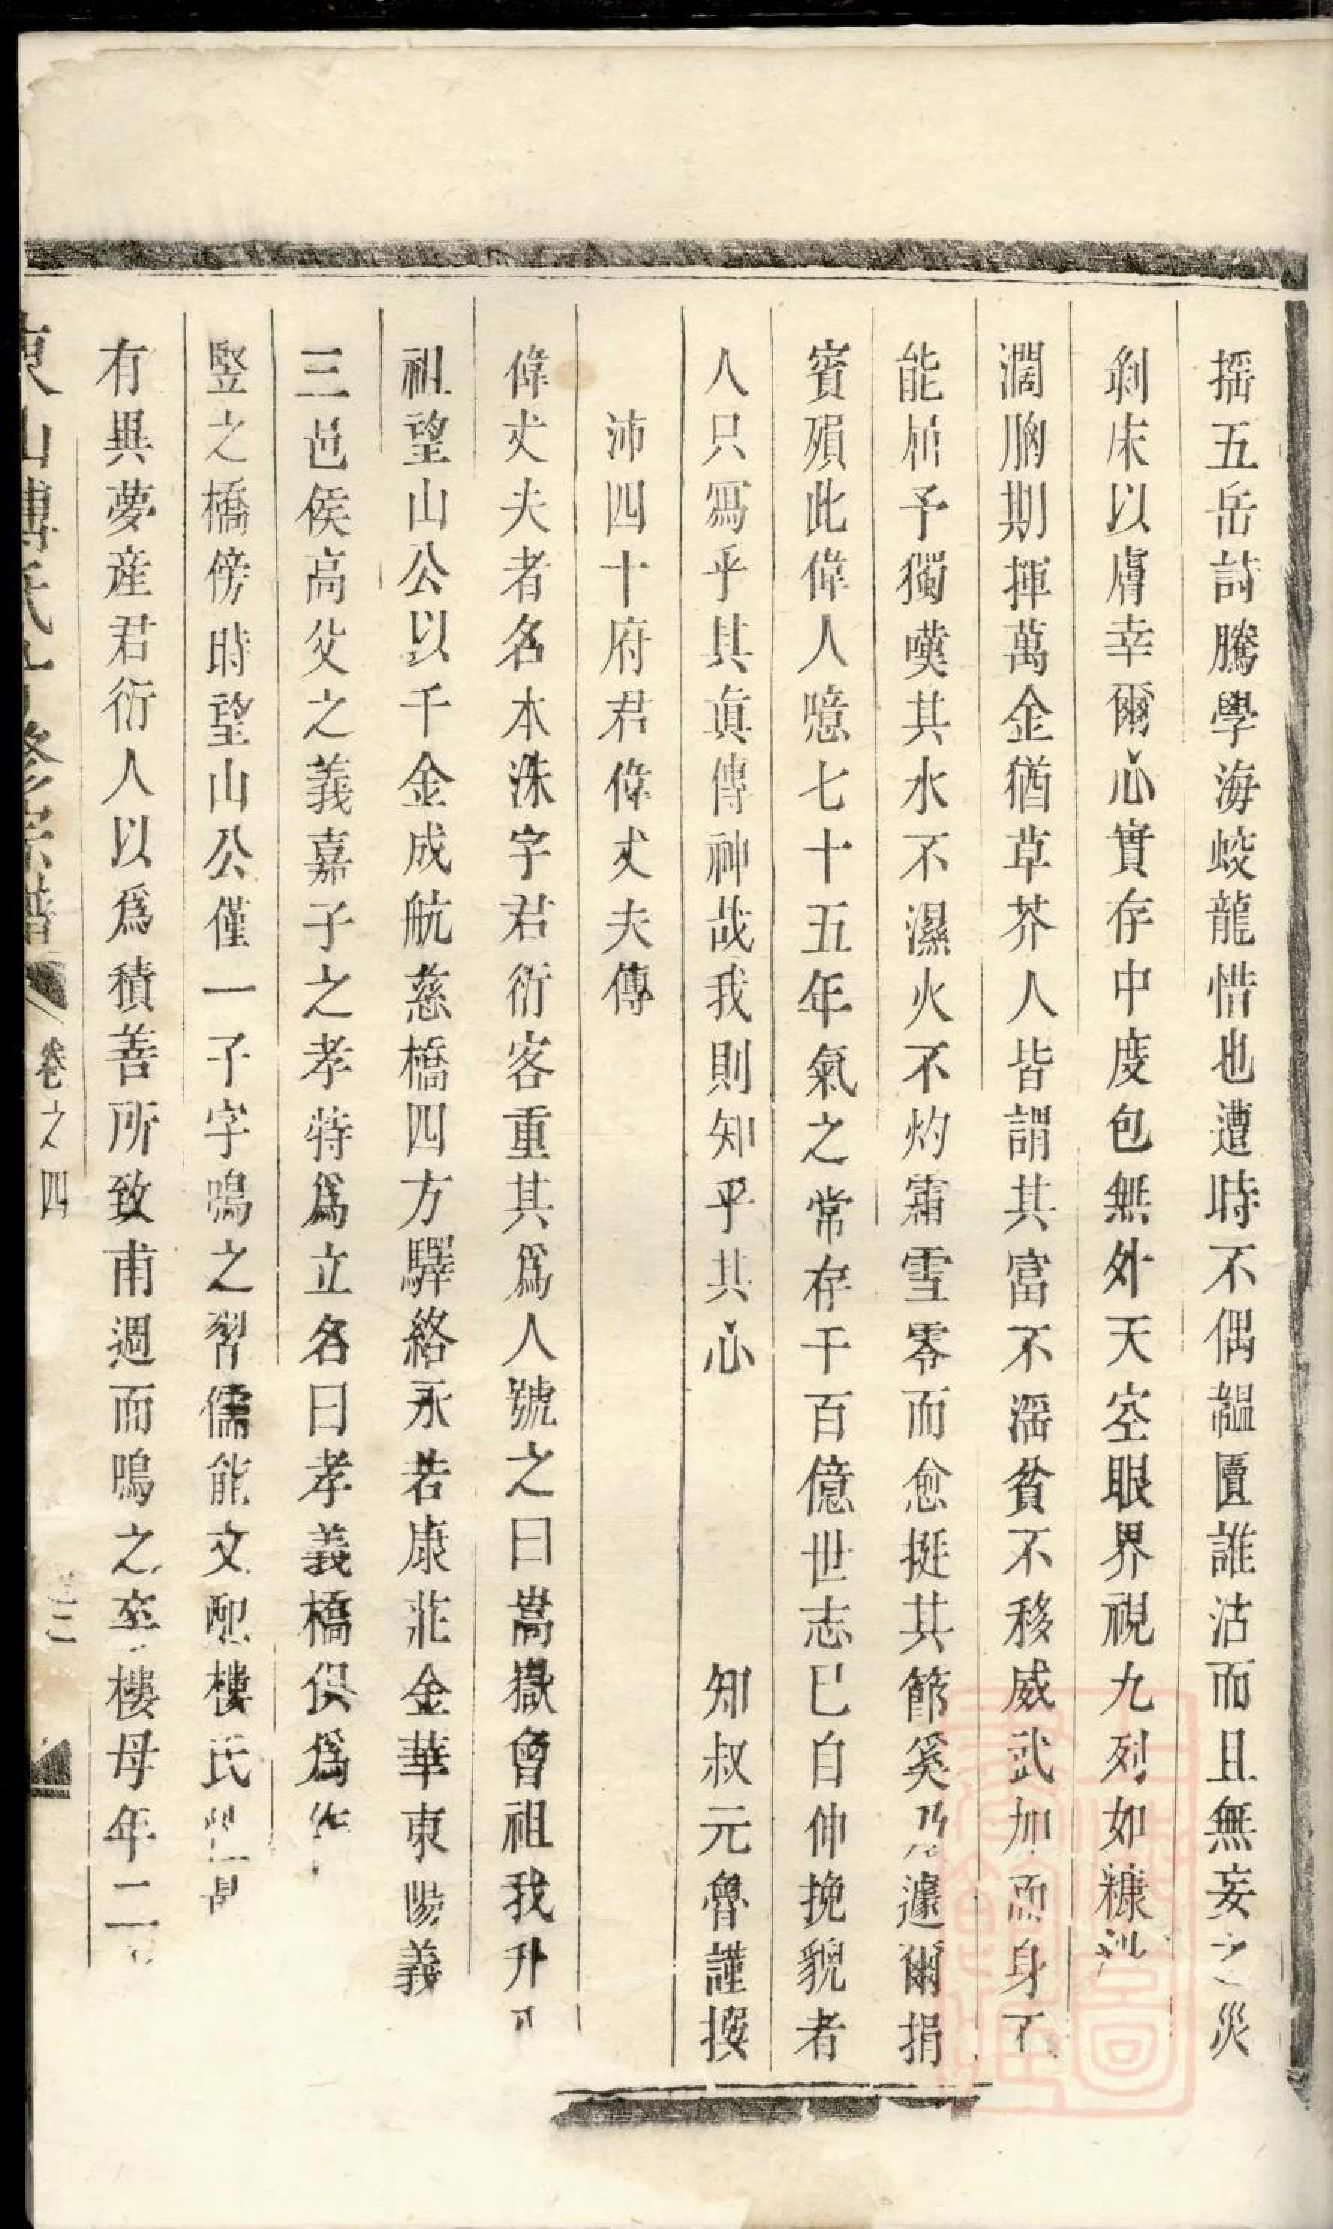 搖五岳詩騰學海蛟龍惜也遭時不偶韞匱誰沽而且無妄之災
剝床以膚幸爾心實存中度包無外天空眼界視九列如糠
濶胸期揮萬金猶草芥人皆謂其富不滛貧不移威武加而身不
能屈予獨嘆其水不濕火不灼霜雪零而愈挺其節奚乃遽爾捐
賓殞此偉人噫七十五年氣之常存千百億世志已自伸挽貌者
人只寫乎其眞傳神哉我則知乎其心 知叔元魯謹撰
沛四十府君偉丈夫傳
偉丈夫者名本洙字君衍客重其爲人號之曰嵩嶽曾祖我升
祖望山公以千金成航慈橋四方驛絡永若康莊金華東陽義
三邑侯高父之義嘉子之孝特爲立名曰孝義橋俱爲
竪之橋傍時望山公僅一子字鳴之習儒能文配樓氏
有異夢産君衍人以爲積善所致甫週而鳴之卒樓母年二
東山傅氏 修宗譜 卷之四